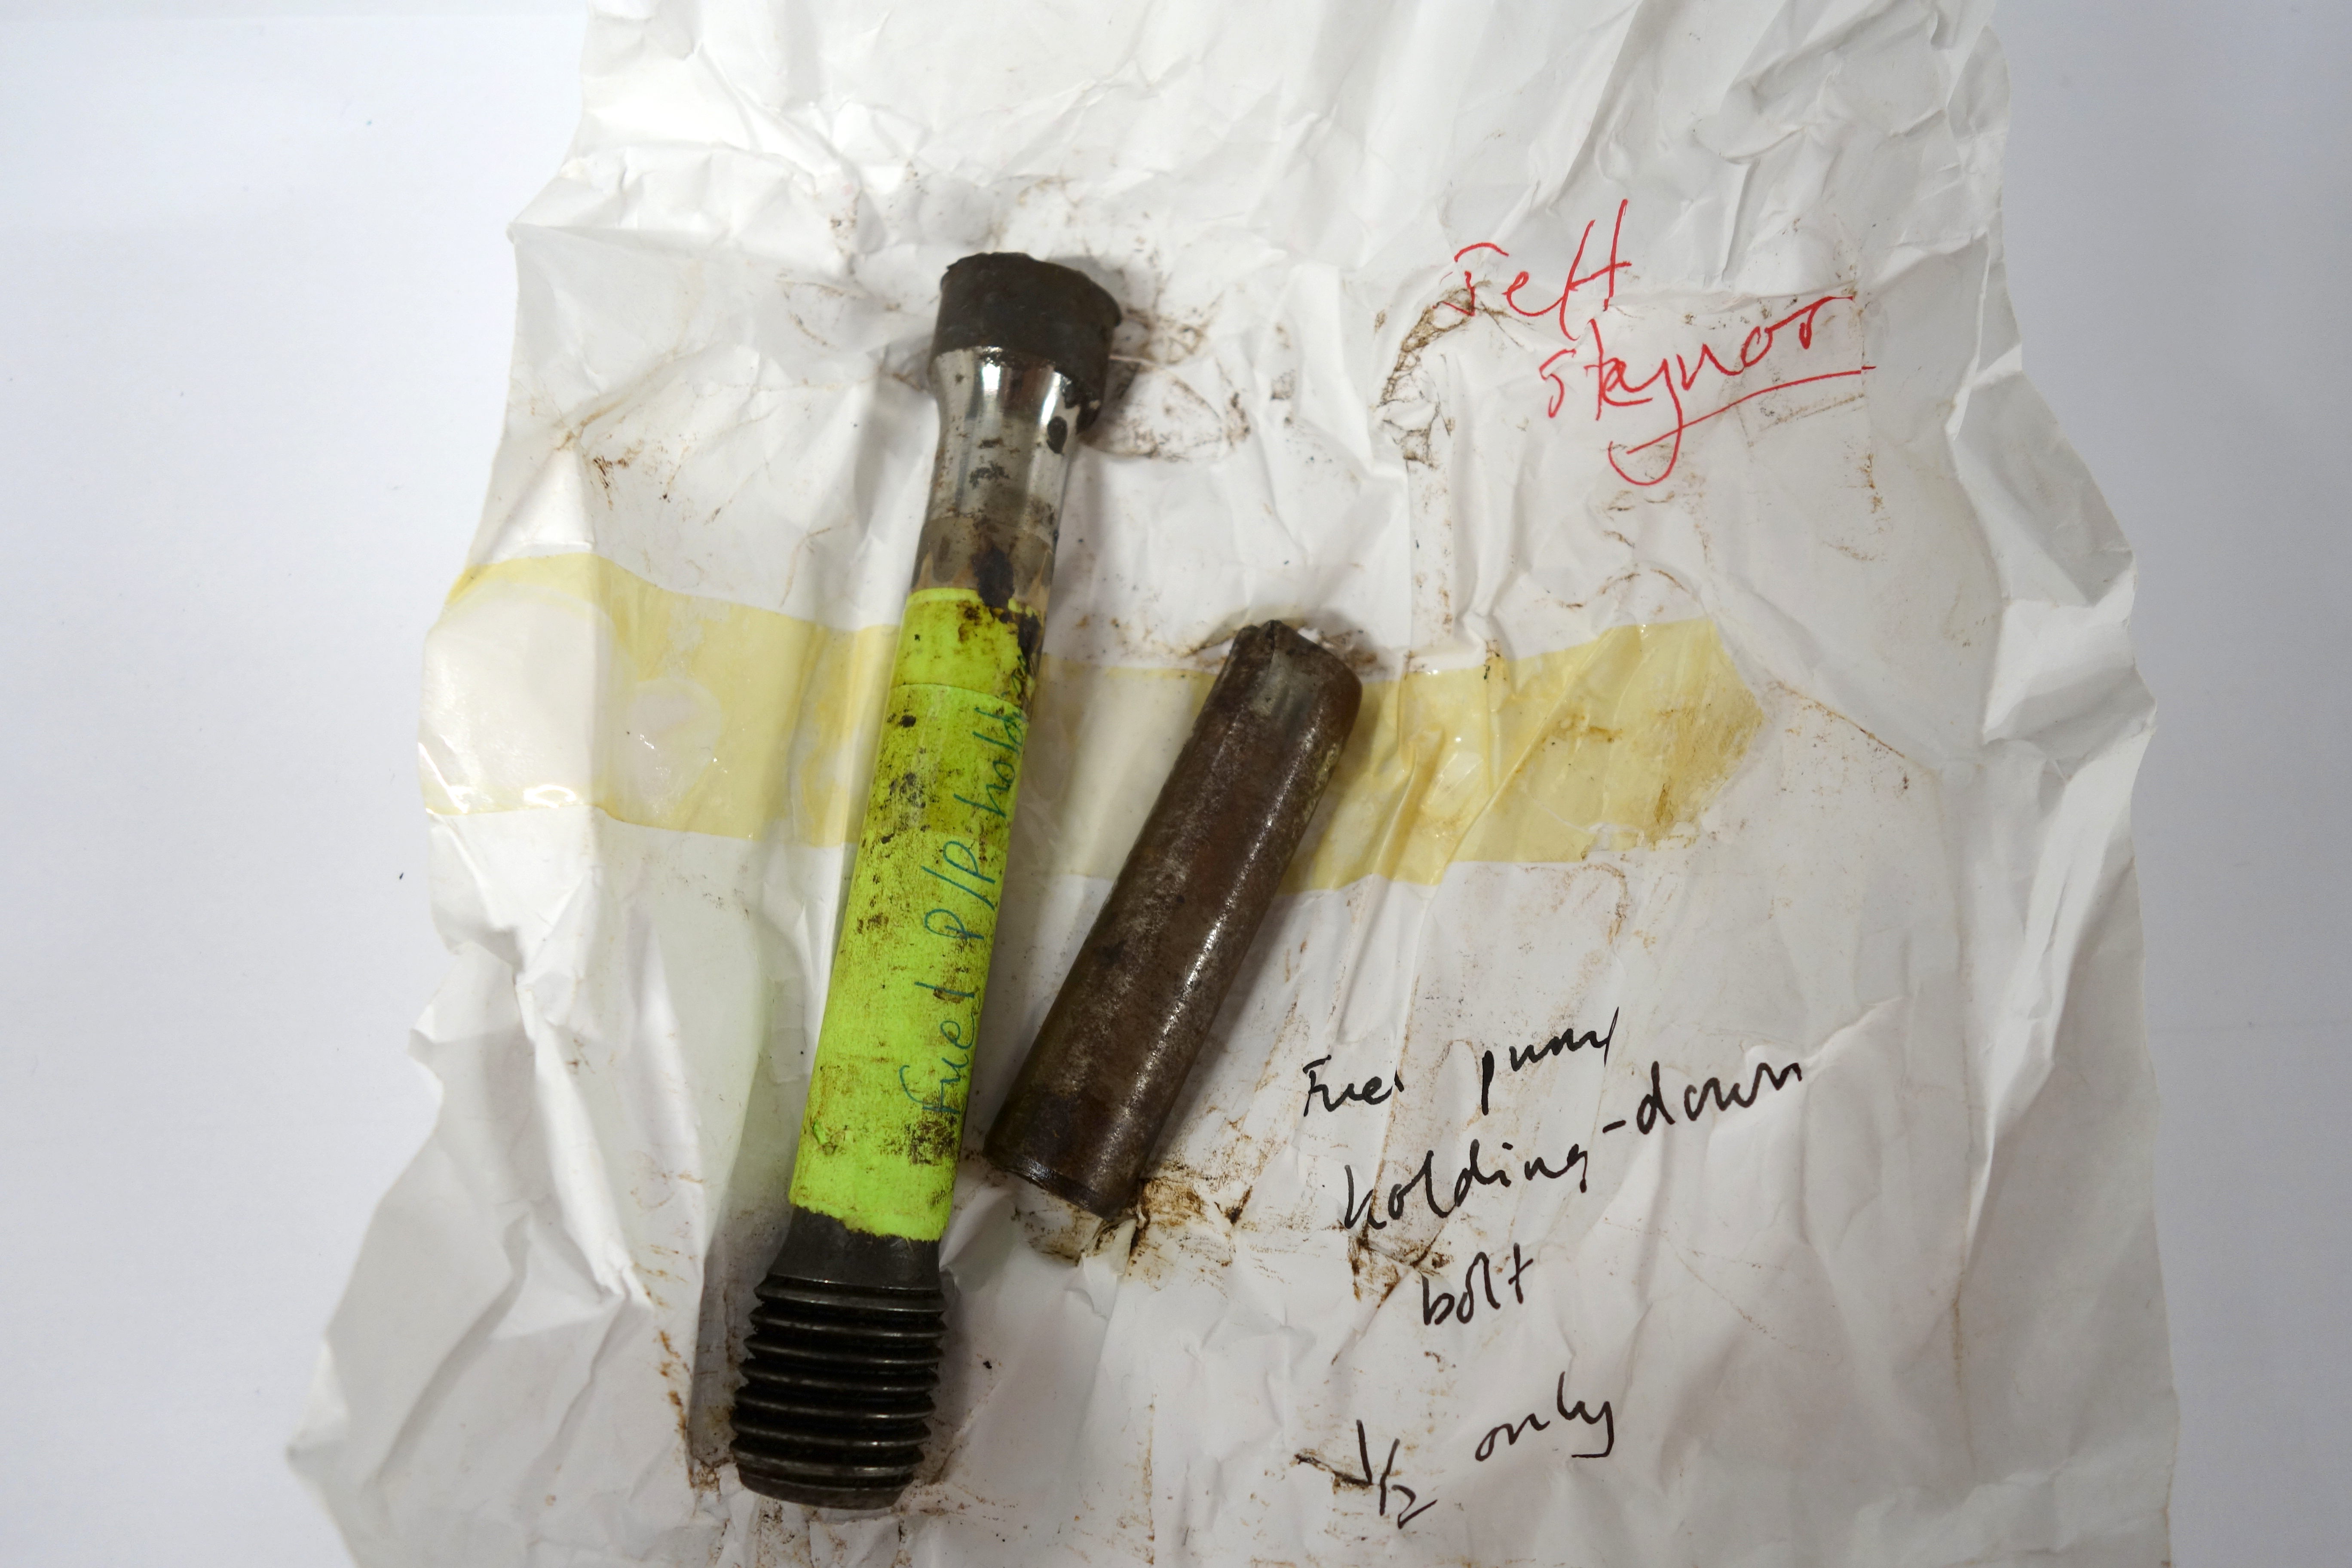 Jeff
Skynor
Fuel P/P hold
Fuel pump
holding-down
bolt
1/2 only